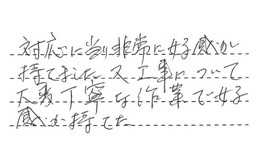 対応に当り非常に好感が
持てました又工事について
大変丁寧な作業で好
感が持てた